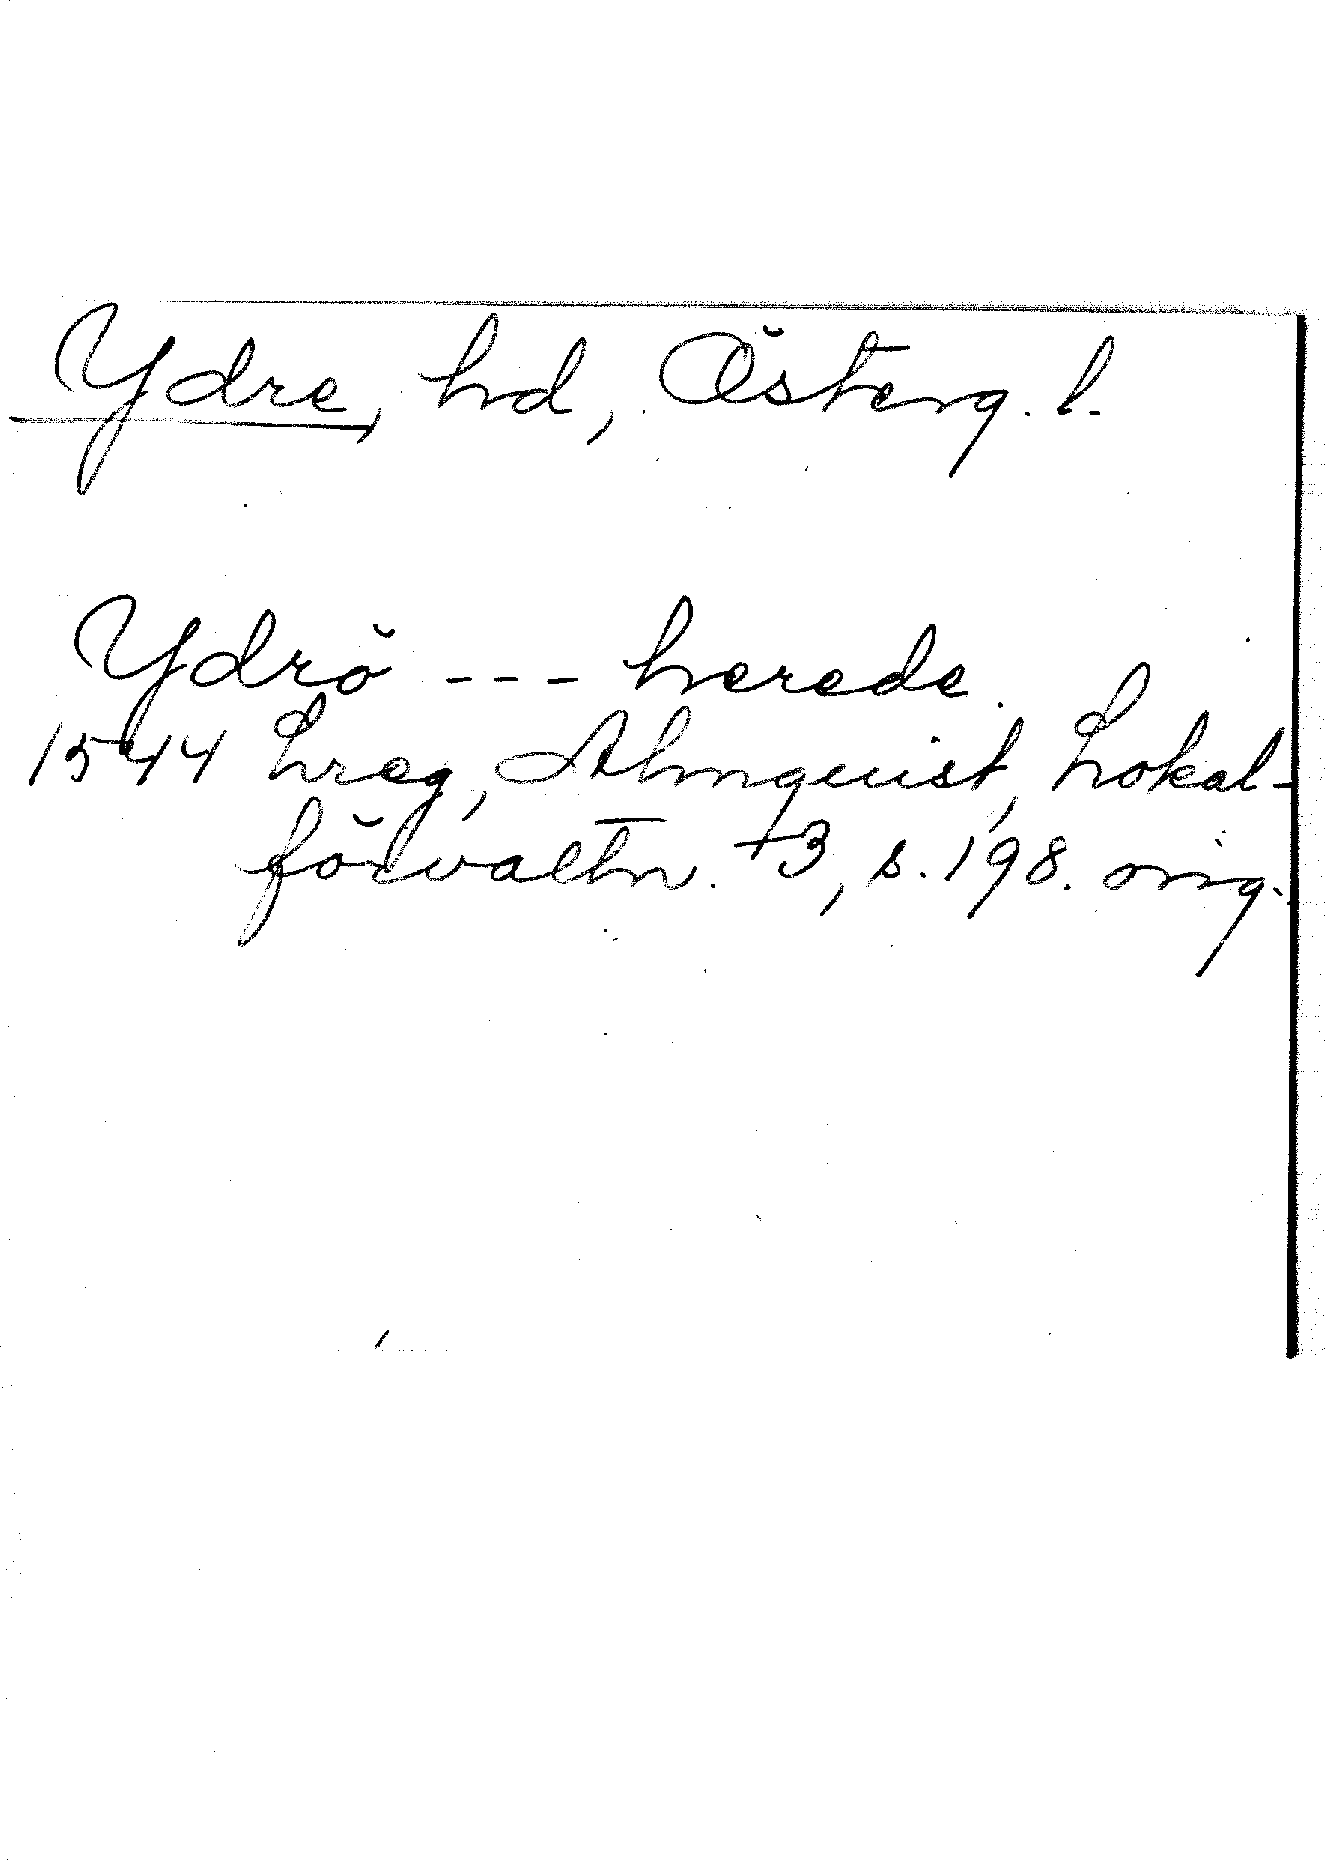 Ydre, hd, Österg. l.
Ydrö --- herede.
1544 Lreg, Almquist, Lokal-
förvaltn. +3, s. 198. orig.